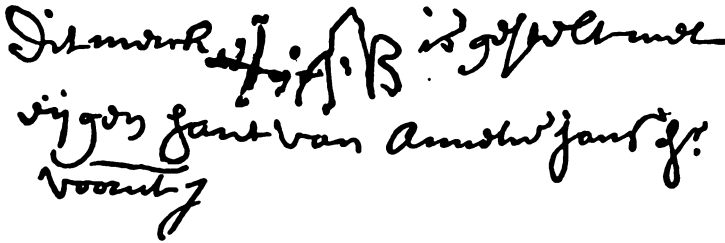 Dit merck HAB is gestelt met
eijgen hant van Annetie Jans ſr.
voornt